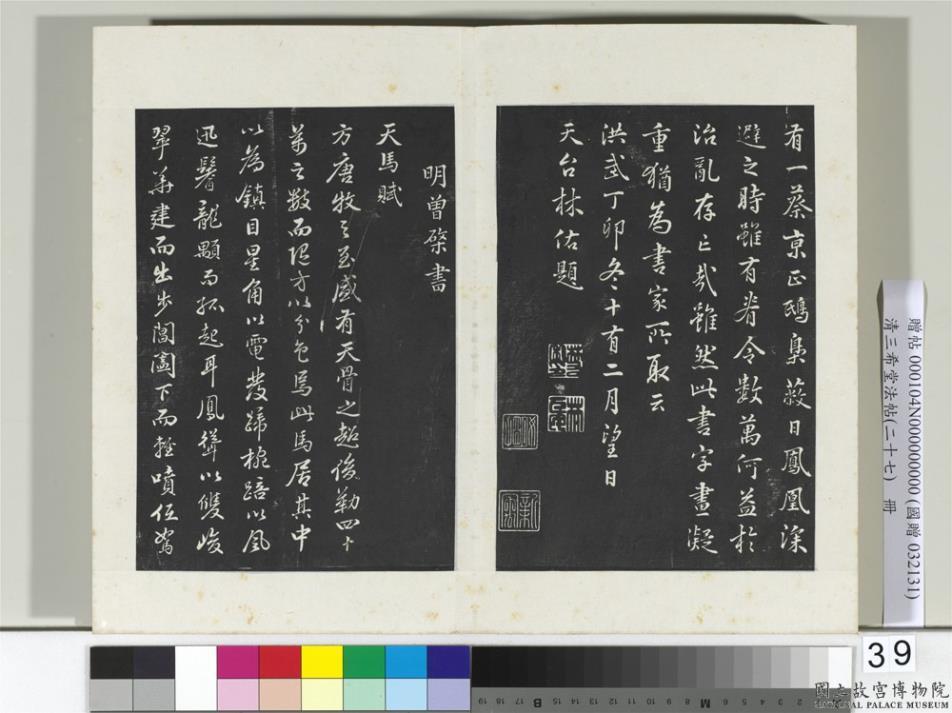 有一蔡京正鴟梟蔽日鳳凰深
避之時雖有眷令數萬何益於
治亂存亡哉雖然此書字畫凝
重猶為書家所取云
洪武丁卯冬十有二月望日
天台林佑題
明曾棨書
天馬賦
方唐牧之至盛有天骨之超俊勒四十
萬之數而隨方以分色焉此馬居其中
以為鎮目星角以電發蹄椀踣以風
迅鬐龍顒而孤起耳鳳聳以雙峻
翠華建而出步閶闔下而輕噴低駑
贈帖 000104N000000000 (國贈 032131)
清三希堂法帖(二十七) 冊
39
國立故宮博物院
NATIONAL PALACE MUSEUM